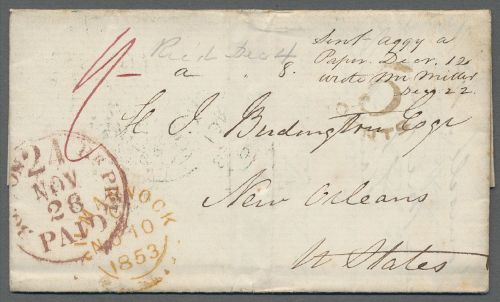 Recd Dec 4
a . 8.
Sent Aggy a
Paper Decr. 12
wrote Mr Miller
Decr 22.
H J. Budington Esqr
New Orleans
U States
24
NOV
28
PAID
BR PKT
KILMARNOCK
NO 10
1853